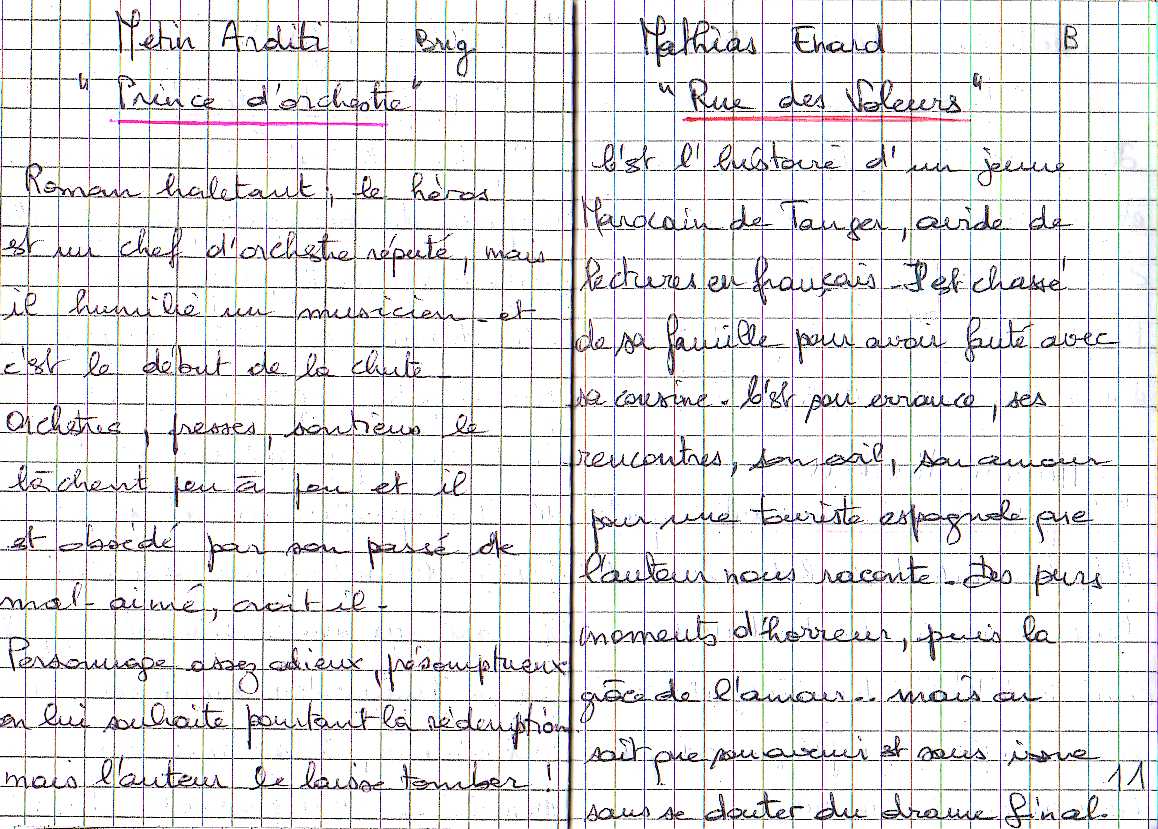 Metin Arditi Brig
"Prince d'orchestre"
Roman haletant, le héros
est un chef d'orchestre réputé, mais
il humilie un musicien et
c'est le début de la chute -
Orchestres, presses, soutiens le
lâchent peu à peu et il
est obsédé par son passé de
mal-aimé, croit il -
Personnage assez odieux, présomptueux
on lui souhaite pourtant la rédemption
mais l'auteur le laisse tomber !
Mathias Enard B
"Rue des Voleurs"
C'est l'histoire d'un jeune
Marocain de Tanger, avide de
lectures en français - Il est chassé
de sa famille pour avoir fauté avec
sa cousine. C'est son errance, ses
rencontres, son exil, son amour
pour une touriste espagnole que
l'auteur nous raconte. Des purs
moments d'horreur, puis la
grâce de l'amour.. mais on
sait que son avenir est sans issue
sans se douter du drame final.
11